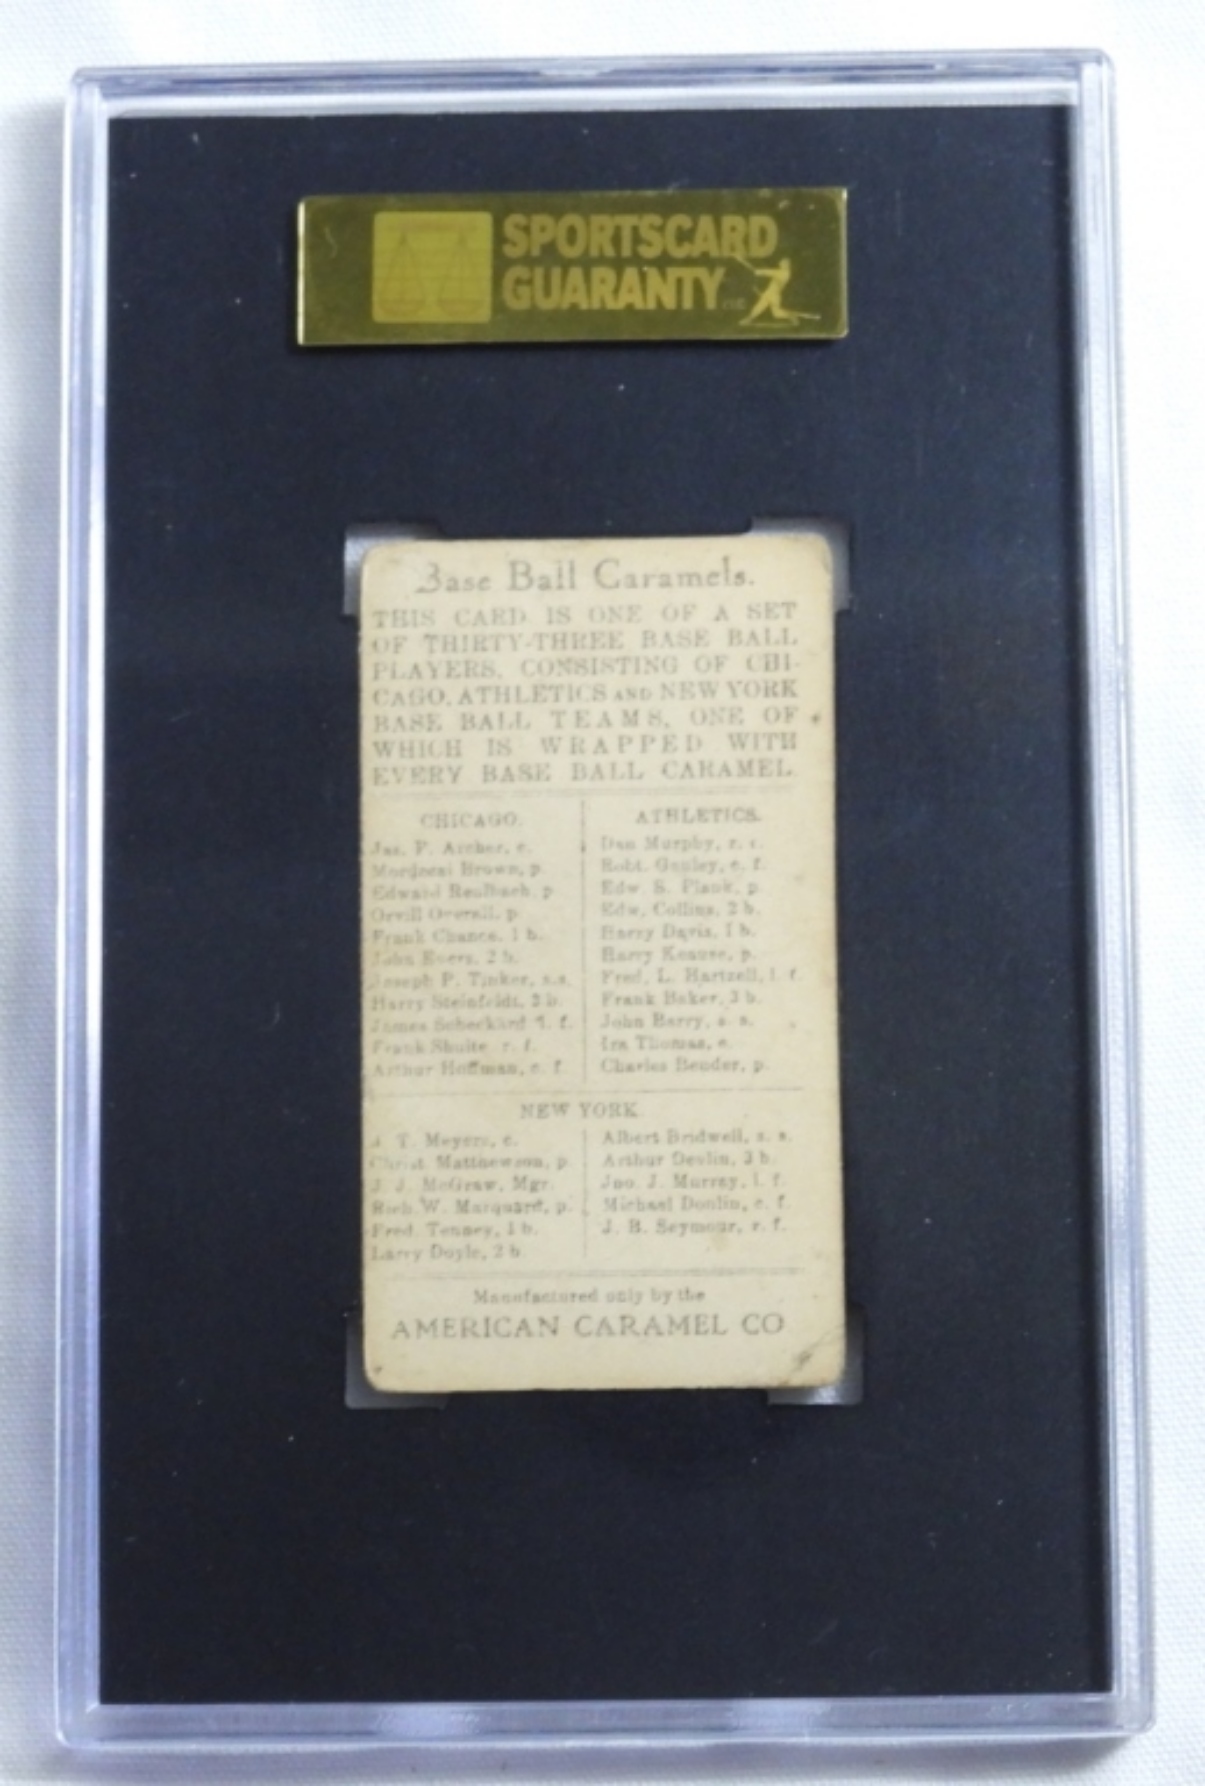 SPORTSCARD
GUARANTY
Base Ball Caramels.
THIS CARD IS ONE OF A SET
OF THIRTY-THREE BASE BALL
PLAYERS, CONSISTING OF CHI-
CAGO, ATHLETICS AND NEW YORK
BASE BALL TEAMS, ONE OF
WHICH IS WRAPPED WITH
EVERY BASE BALL CARAMEL.
CHICAGO.
Jas. F. Archer, c.
Mordecai Brown, p.
Edward Reulbach, p
Orvill Overall, p
Frank Chance, 1 b.
John Evers, 2 b.
Joseph P. Tinker, s.s.
Harry Steinfeldt, 3 b.
James Scheckard l. f.
Frank Shulte r. f.
Arthur Hoffman, c. f.
ATHLETICS.
Dan Murphy, r. f.
Robt. Ganley, c. f.
Edw. S. Plank, p.
Edw. Collins, 2 b.
Harry Davis, 1 b.
Harry Krause, p.
Fred. L. Hartzell, l. f.
Frank Baker, 3 b.
John Barry, s. s.
Ira Thomas, c.
Charles Bender, p.
NEW YORK
T. Meyers, c.
Christ. Matthewson, p.
J. J. McGraw, Mgr.
Rich. W. Marquard, p.
Fred. Tenney, 1 b.
Larry Doyle, 2 b.
Albert Bridwell, s. s.
Arthur Devlin, 3 b.
Jno. J. Murray, l. f.
Michael Donlin, c. f.
J. B. Seymour, r. f.
Manufactured only by the
AMERICAN CARAMEL CO